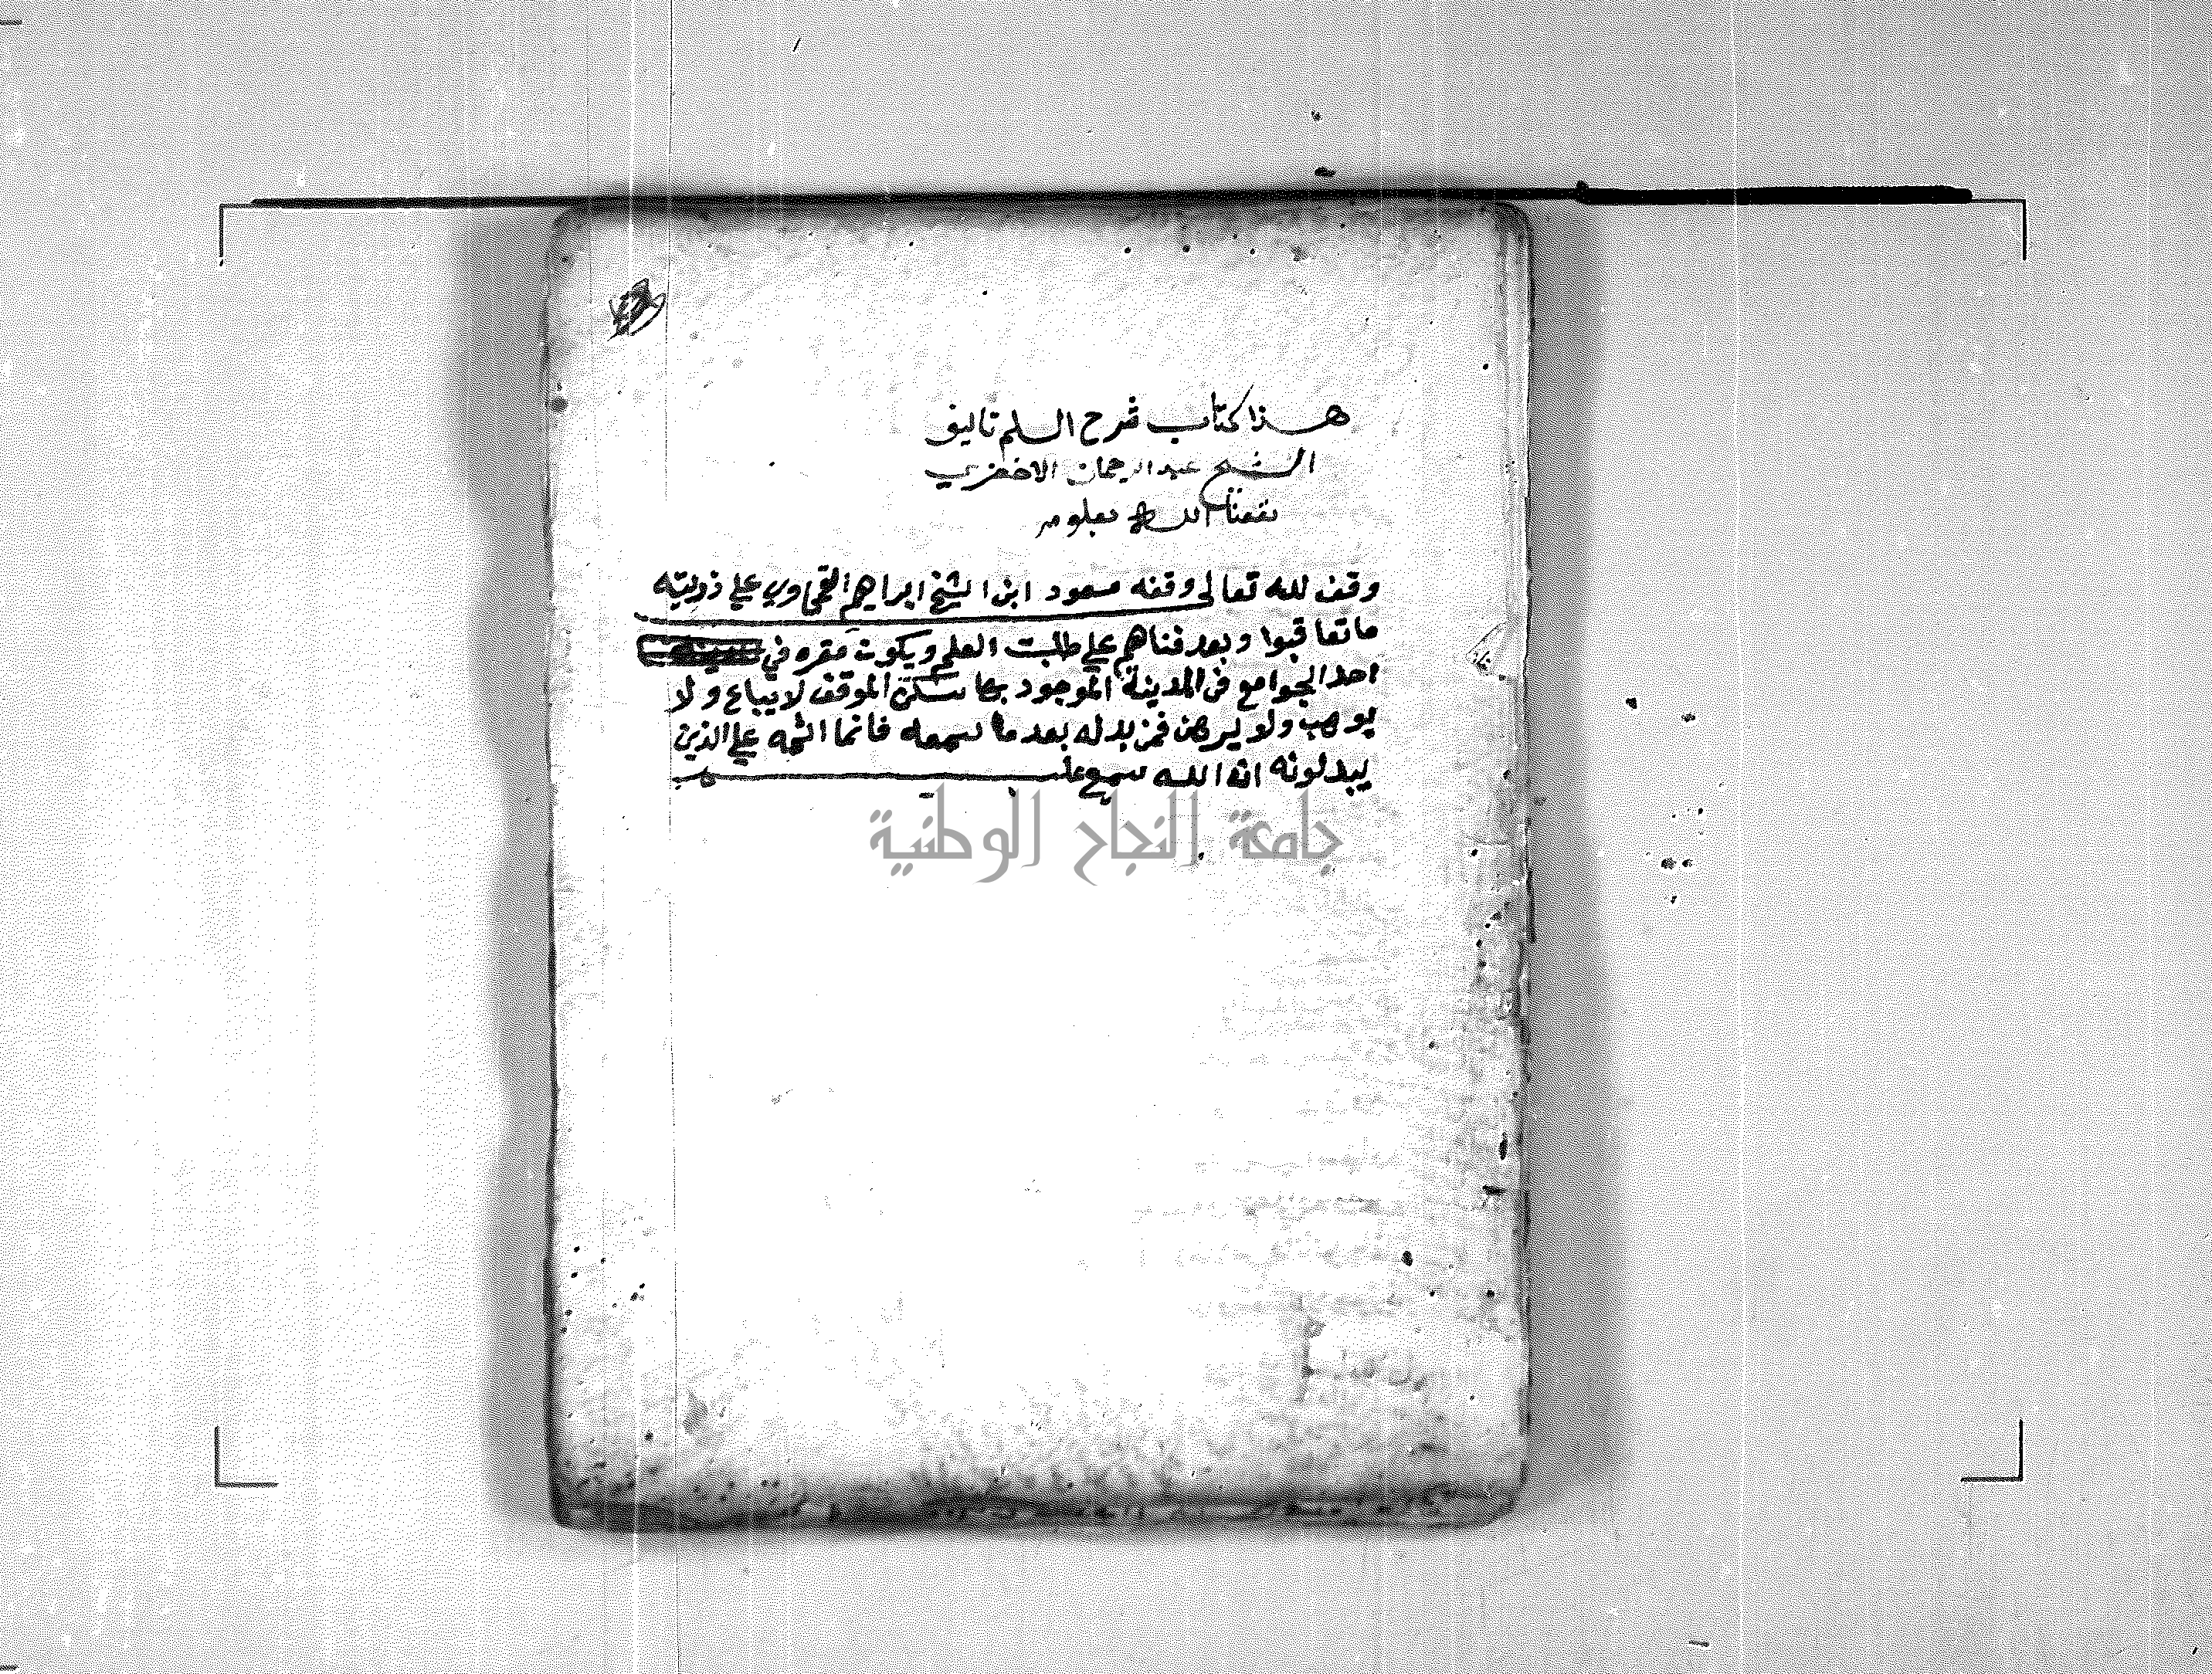 هذا كتاب شرح السلم تاليف
الشيخ عبد الرحمان الاخضري
نفعنا الله بعلومه
وقف لله تعالى وقفه مسعود ابن الشيخ ابراهيم علي ذريته
ما تعاقبوا وبعد فناهم علي طلبت العلم ويكون مقره في
احد الجوامع في المدينة الموجود بها سكن الموقف لا يباع ولا
يوهب ولا يرهن فمن بدله بعد ما سمعه فانما اثمه علي الذين
يبدلونه ان الله سميع عليم
جامعة النجاح الوطنية